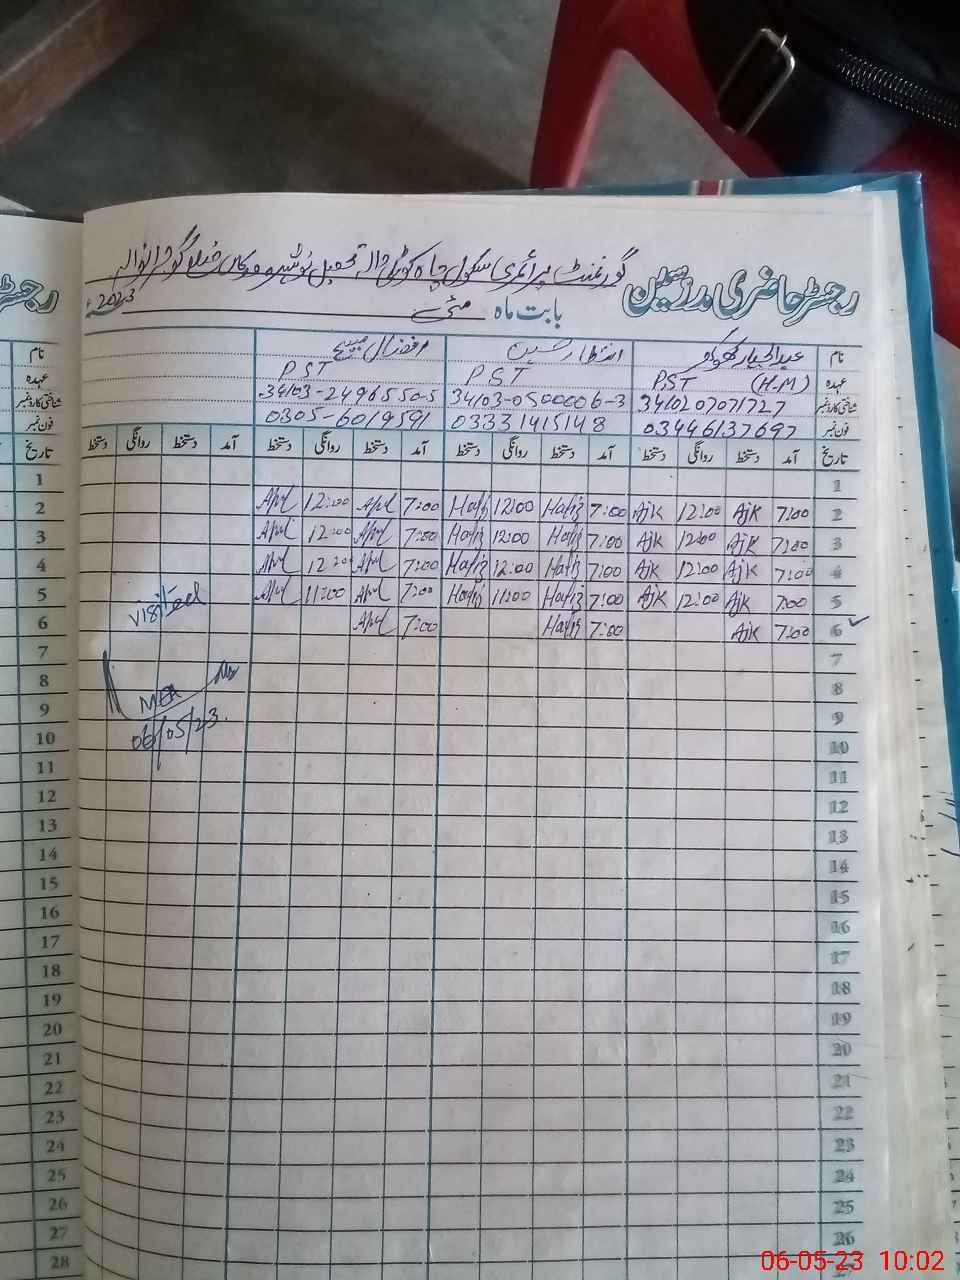 رجسٹر حاضری مدرسین گورنمنٹ پرائمری سکول چاہ کوٹلی والہ تحصیل نوشہرہ ورکاں ضلع گوجرانوالہ
بابت ماہ مئی 2023ء
نام عبدالجبار کھوکھر انتظار حسین افضال مسیح نام
عہدہ PST (H.M) PST PST عہدہ
شناختی کارڈ نمبر 3410207071727 34103-0500006-3 34103-2496550-5 شناختی کارڈ نمبر
فون نمبر 03446137697 03331415148 0305-6019591 فون نمبر
تاریخ آمد دستخط روانگی دستخط آمد دستخط روانگی دستخط آمد دستخط روانگی دستخط آمد دستخط روانگی دستخط تاریخ
1 1
2 7:00 AJK 12:00 AJK 7:00 Hafiz 12:00 Hafiz 7:00 12:00 2
3 7:00 AJK 12:00 AJK 7:00 Hafiz 12:00 Hafiz 7:00 12:00 3
4 7:00 AJK 12:00 AJK 7:00 Hafiz 12:00 Hafiz 7:00 12:00 4
5 7:00 AJK 12:00 AJK 7:00 Hafiz 11:00 Hafiz 7:00 11:00 5
6 7:00 AJK 7:00 Hafiz 7:00 6
visited
7 7
8 8
MEA
9 9
06/05/23.
10 10
11 11
12 12
13 13
14 14
15 15
16 16
17 17
18 18
19 19
20 20
21 21
22 22
23 23
24 24
25 25
26 26
27 27
28
06-05-23 10:02